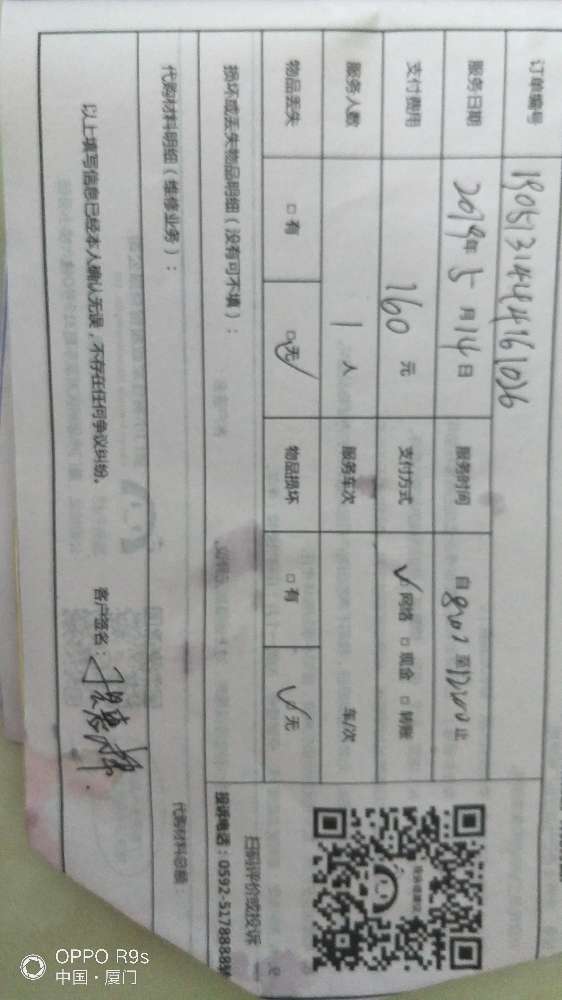 订单编号 1905131444761036
服务日期 2019年 5 月 14 日 服务时间 自 8:00 至 12:00 止
支付费用 160 元 支付方式 ✓网络 □现金 □转账
服务人数 1 人 服务车次 车/次
物品丢失 □有 □无✓ 物品损坏 □有 ✓无
损坏或丢失物品明细(没有可不填):
扫码评价或投诉
投诉电话:0592-5178888转
代购材料明细(维修业务): 代购材料总额:
以上填写信息已经本人确认无误,不存在任何争议纠纷。 客户签名:
OPPO R9s
中国·厦门